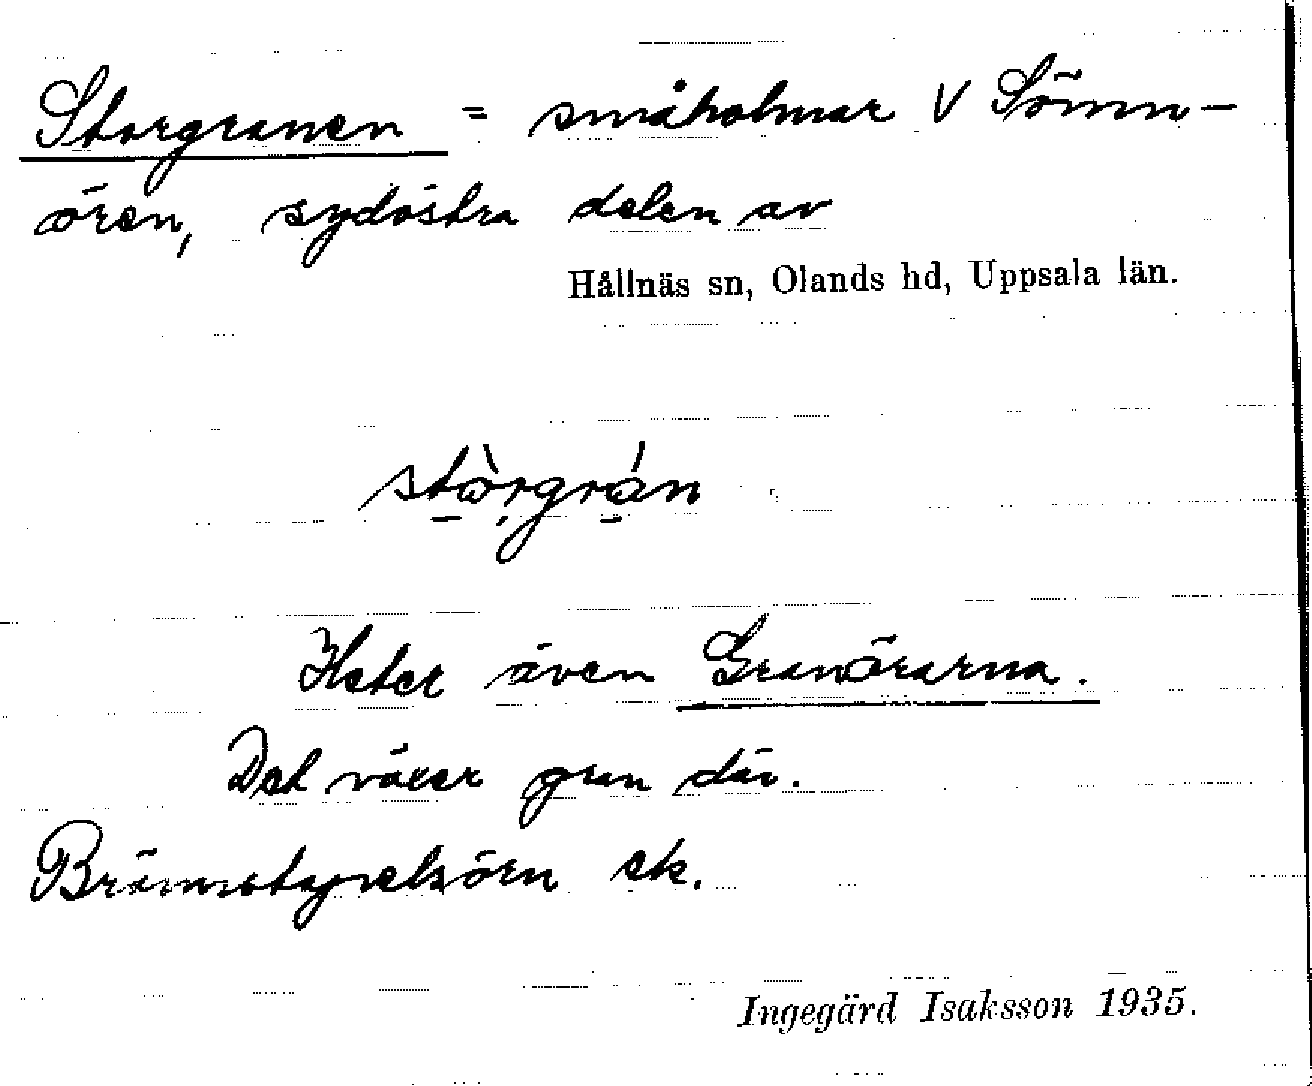 Storgranen = småholmar V Sömn-
ören, sydöstra delen av
Hållnäs sn, Olands hd, Uppsala län.
stòrgrán
Heter även Granörarna.
Det växer gran där.
ek.
Ingegärd Isaksson 1935.